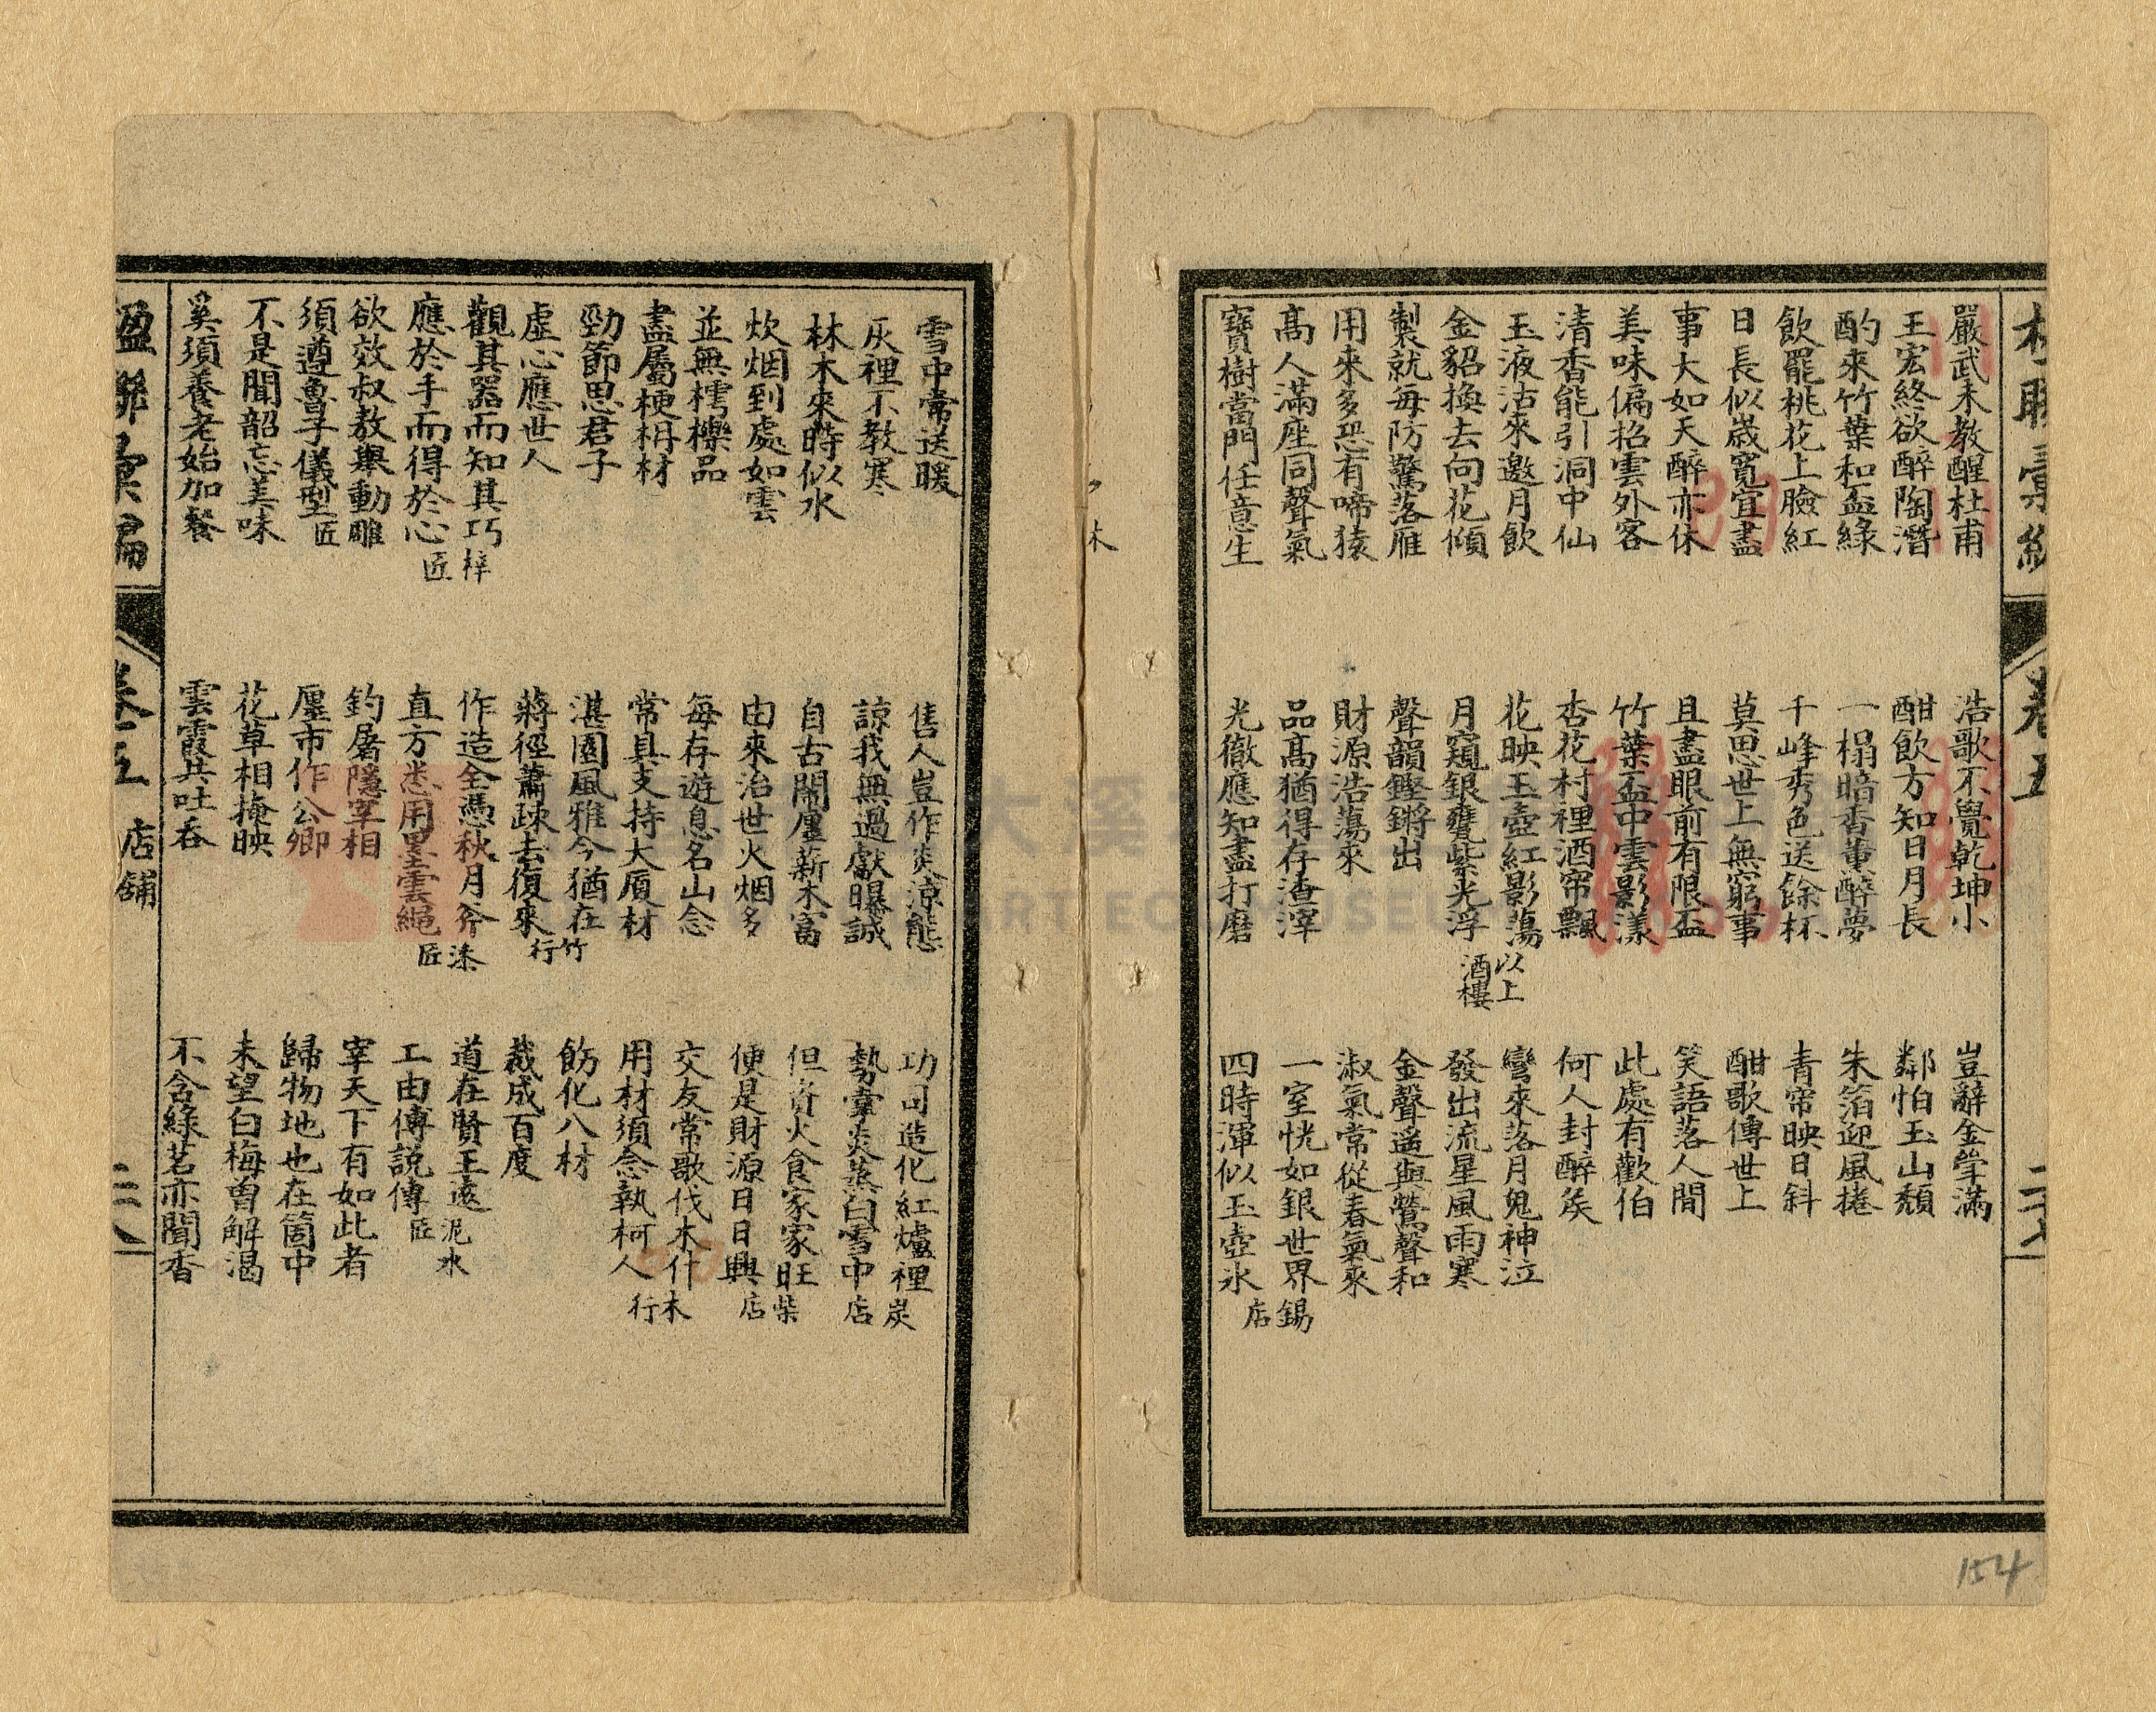 楹聯彙編
卷五
二十七
嚴武未教醒杜甫
王宏終欲醉陶潛
酌來竹葉和盃綠
飲罷桃花上臉紅
日長似歲寬宜盡
事大如天醉亦休
美味偏招雲外客
清香能引洞中仙
玉液沽來邀月飲
金貂換去向花傾
製就每防驚落雁
用來多恐有啼猿
高人滿座同聲氣
寶樹當門任意生
浩歌不覺乾坤小
酣飲方知日月長
一榻暗香薰醉夢
千峰秀色送餘杯
莫思世上無窮事
且盡眼前有限盃
竹葉盃中雲影漾
杏花村裡酒帘飄
花映玉壺紅影蕩
月窺銀甕紫光浮
以上酒樓
聲韻鏗鏘出
財源浩蕩來
品高猶得存渣滓
光徹應知盡打磨
豈辭金掌滿
鄰怕玉山頹
朱箔迎風捲
青帘映日斜
酣歌傳世上
笑語落人間
此處有歡伯
何人封醉矦
彎來落月鬼神泣
發出流星風雨寒
金聲遥與鶯聲和
淑氣常從春氣來
一室恍如銀世界
四時渾似玉壺氷
錫店
154
雪中常送暖
灰裡不教寒
林木來時似水
炊烟到處如雲
並無樗櫟品
盡屬梗枏材
勁節思君子
虛心應世人
觀其器而知其巧
應於手而得於心
梓匠
欲效叔敖舉動
須遵魯子儀型
雕匠
不是聞韶忘美味
奚須養老始加餐
售人豈作炎涼態
諒我無過獻曝誠
自古閙廛薪木富
由來治世火烟多
每存遊息名山念
常具支持大厦材
湛園風雅今猶在
蔣徑蕭疎去復來
竹行
作造全憑秋月斧
直方悉用墨雲繩
漆匠
釣屠隱宰相
廛市作公卿
花草相掩映
雲霞共吐吞
功同造化紅爐裡
勢奪炎蒸白雪中
炭店
但資火食家家旺
便是財源日日興
柴店
交友常歌伐木什
用材須念執柯人
木行
飭化八材
裁成百度
道在賢王遠
工由傅說傳
泥水匠
宰天下有如此者
歸物地也在箇中
未望白梅曾解渴
不含綠茗亦聞香
楹聯彙編
卷五
店舖
二十八